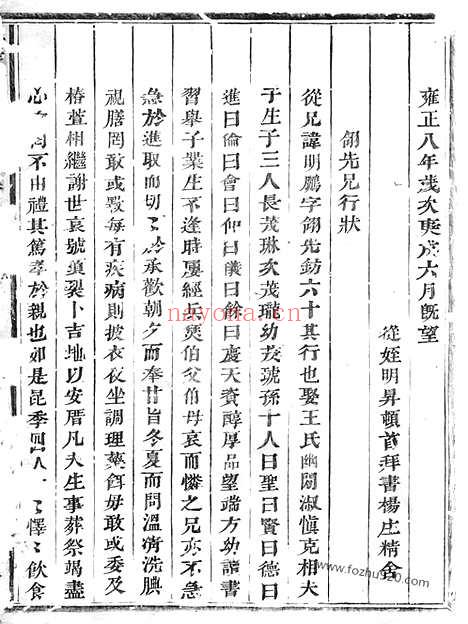 雍正八年歲次庚戌六月旣望
從姪明昇頓首拜書楊庄精舍
翎先兄行狀
從兄諱明鵬字翎先魴六十其行也娶王氏幽閒淑愼克相夫
子生子三人長茂琳次茂瓏幼茂琥孫十人曰聖曰賢曰德曰
進曰倫曰會曰仰曰儀曰餘曰慶天資醇厚品望端方幼讀書
習舉子業生不逢時屢經兵燹伯父伯母哀而憐之兄亦不急
急於進取而切〻於承歡朝夕而奉甘旨冬夏而問溫凊洗腆
視膳罔敢或斁每有疾病則披衣夜坐調理藥餌毋敢或委及
椿萱相繼謝世哀號莫裂卜吉地以安厝凡夫生事葬祭竭盡
心 罔不由禮其篤孝於親也如是昆季四人 〻懌〻飲食
nayona.cn
www.fozhu920.com